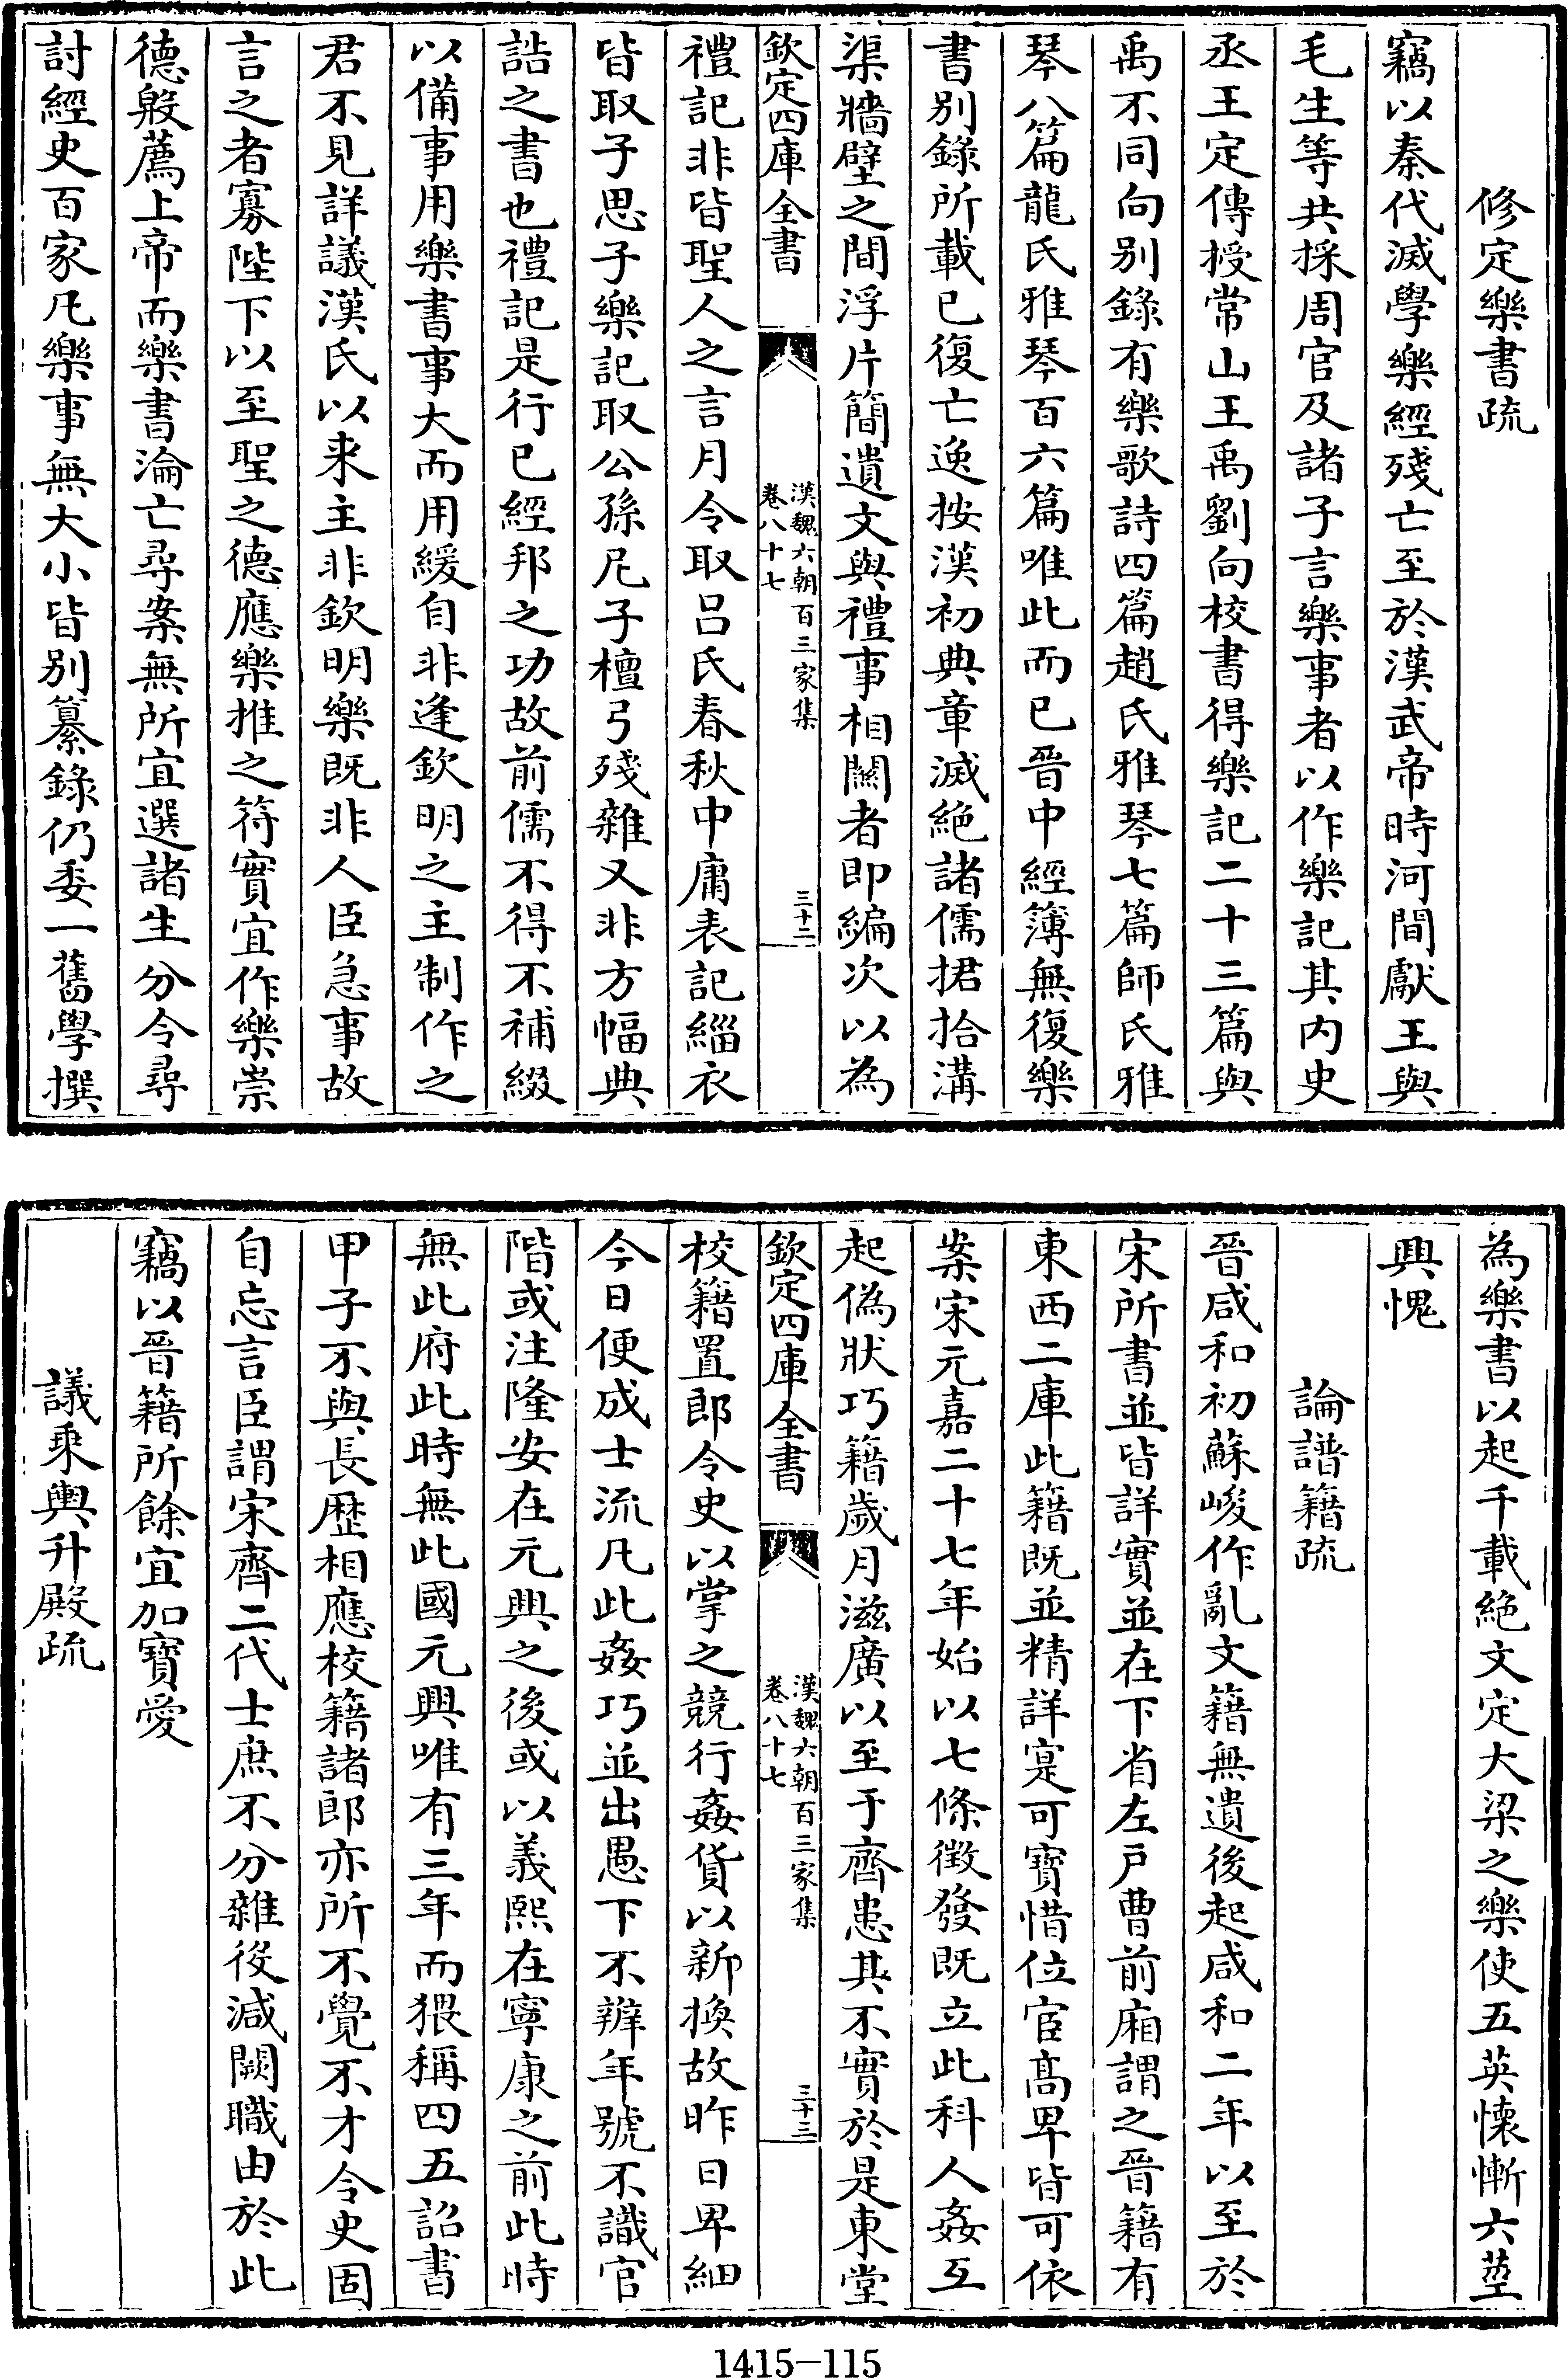 修定樂書疏
竊以秦代滅學樂經殘亡至於漢武帝時河間獻王與
毛生等共採周官及諸子言樂事者以作樂記其内史
丞王定傳授常山王禹劉向校書得樂記二十三篇與
禹不同向别錄有樂歌詩四篇趙氏雅琴七篇師氏雅
琴八篇龍氏雅琴百六篇唯此而已晉中經簿無復樂
書别錄所載已復亡逸按漢初典章滅絶諸儒捃拾溝
渠牆壁之間浮片簡遺文與禮事相關者即編次以為
欽定四庫全書
漢魏六朝百三家集
卷八十七
三十二
禮記非皆聖人之言月令取吕氏春秋中庸表記緇衣
皆取子思子樂記取公孫尼子檀弓殘雜又非方幅典
誥之書也禮記是行已經邦之功故前儒不得不補綴
以備事用樂書事大而用緩自非逢欽明之主制作之
君不見詳議漢氏以来主非欽明樂既非人臣急事故
言之者寡陛下以至聖之德應樂推之符實宜作樂崇
德殷薦上帝而樂書淪亡尋案無所宜選諸生分令尋
討經史百家凡樂事無大小皆别纂錄仍委一舊學撰
為樂書以起千載絶文定大梁之樂使五英懷慚六莖
興愧
論譜籍疏
晉咸和初蘇峻作亂文籍無遺後起咸和二年以至於
宋所書並皆詳實並在下省左户曹前廂謂之晉籍有
東西二庫此籍既並精詳寔可寶惜位宦髙卑皆可依
案宋元嘉二十七年始以七條徴發既立此科人姦互
起偽狀巧籍歲月滋廣以至于齊患其不實於是東堂
欽定四庫全書
漢魏六朝百三家集
卷八十七
三十三
校籍置郎令史以掌之競行姦貨以新換故昨日卑細
今日便成士流凡此姦巧並出愚下不辨年號不識官
階或注隆安在元興之後或以義熙在寧康之前此時
無此府此時無此國元興唯有三年而猥稱四五詔書
甲子不與長歴相應校籍諸郎亦所不覺不才令史固
自忘言臣謂宋齊二代士庶不分雜役減闕職由於此
竊以晉籍所餘宜加寶愛
議乘輿升殿疏
1415—115